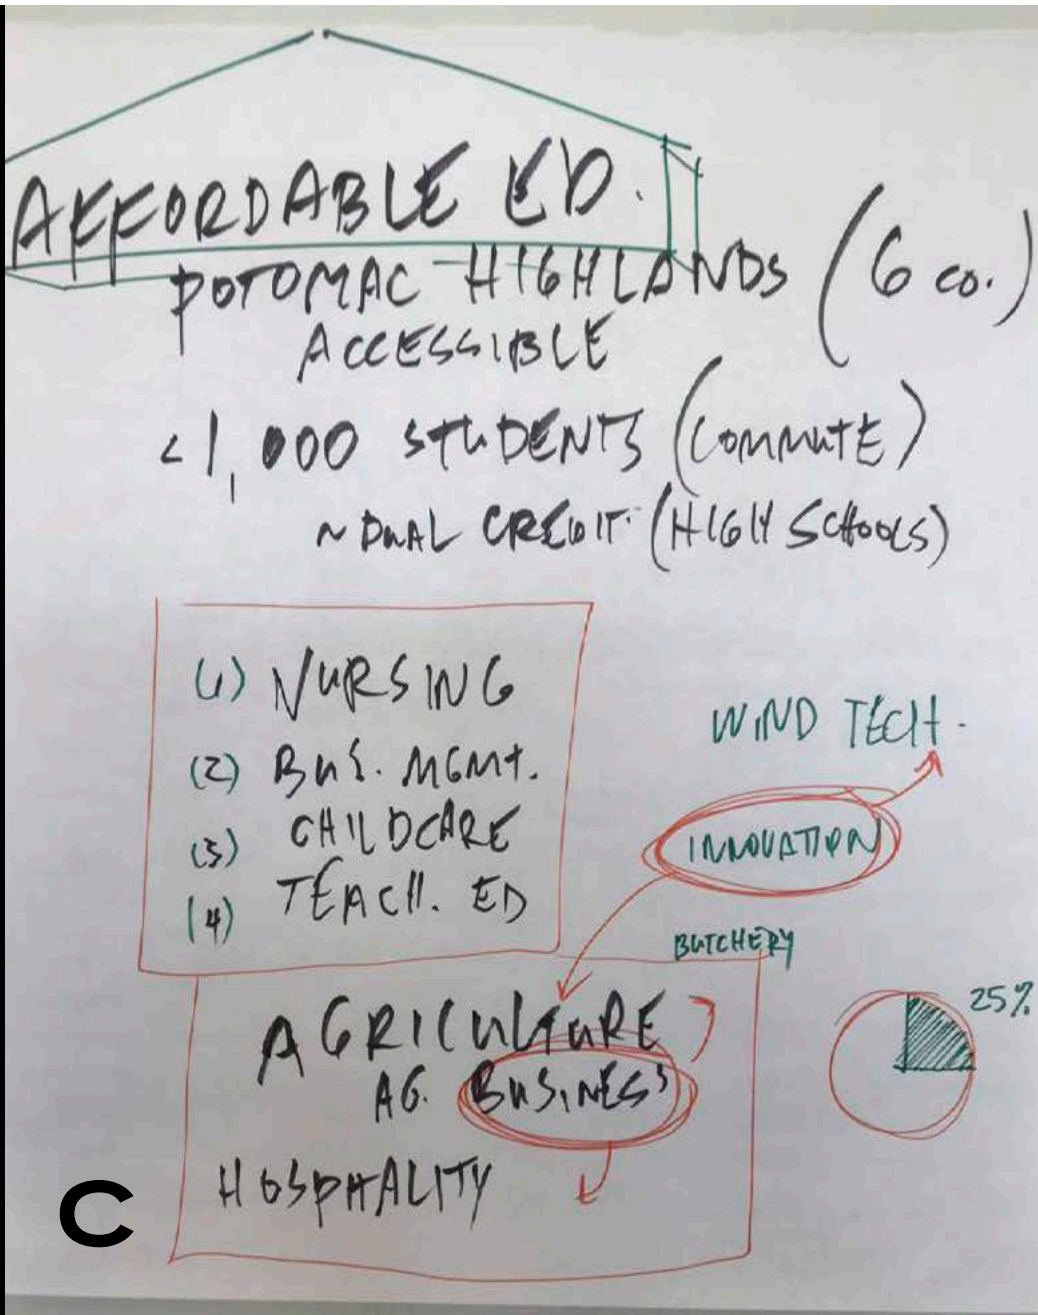 AFFORDABLE ED.
POTOMAC HIGHLANDS (6 co.)
ACCESSIBLE
<1,000 STUDENTS (COMMUTE)
~ DUAL CREDIT (HIGH SCHOOLS)
(1) NURSING
(2) BUS. MGMT.
(3) CHILDCARE
(4) TEACH. ED
WIND TECH.
INNOVATION
BUTCHERY
AGRICULTURE
AG. BUSINESS
HOSPITALITY
25%
C